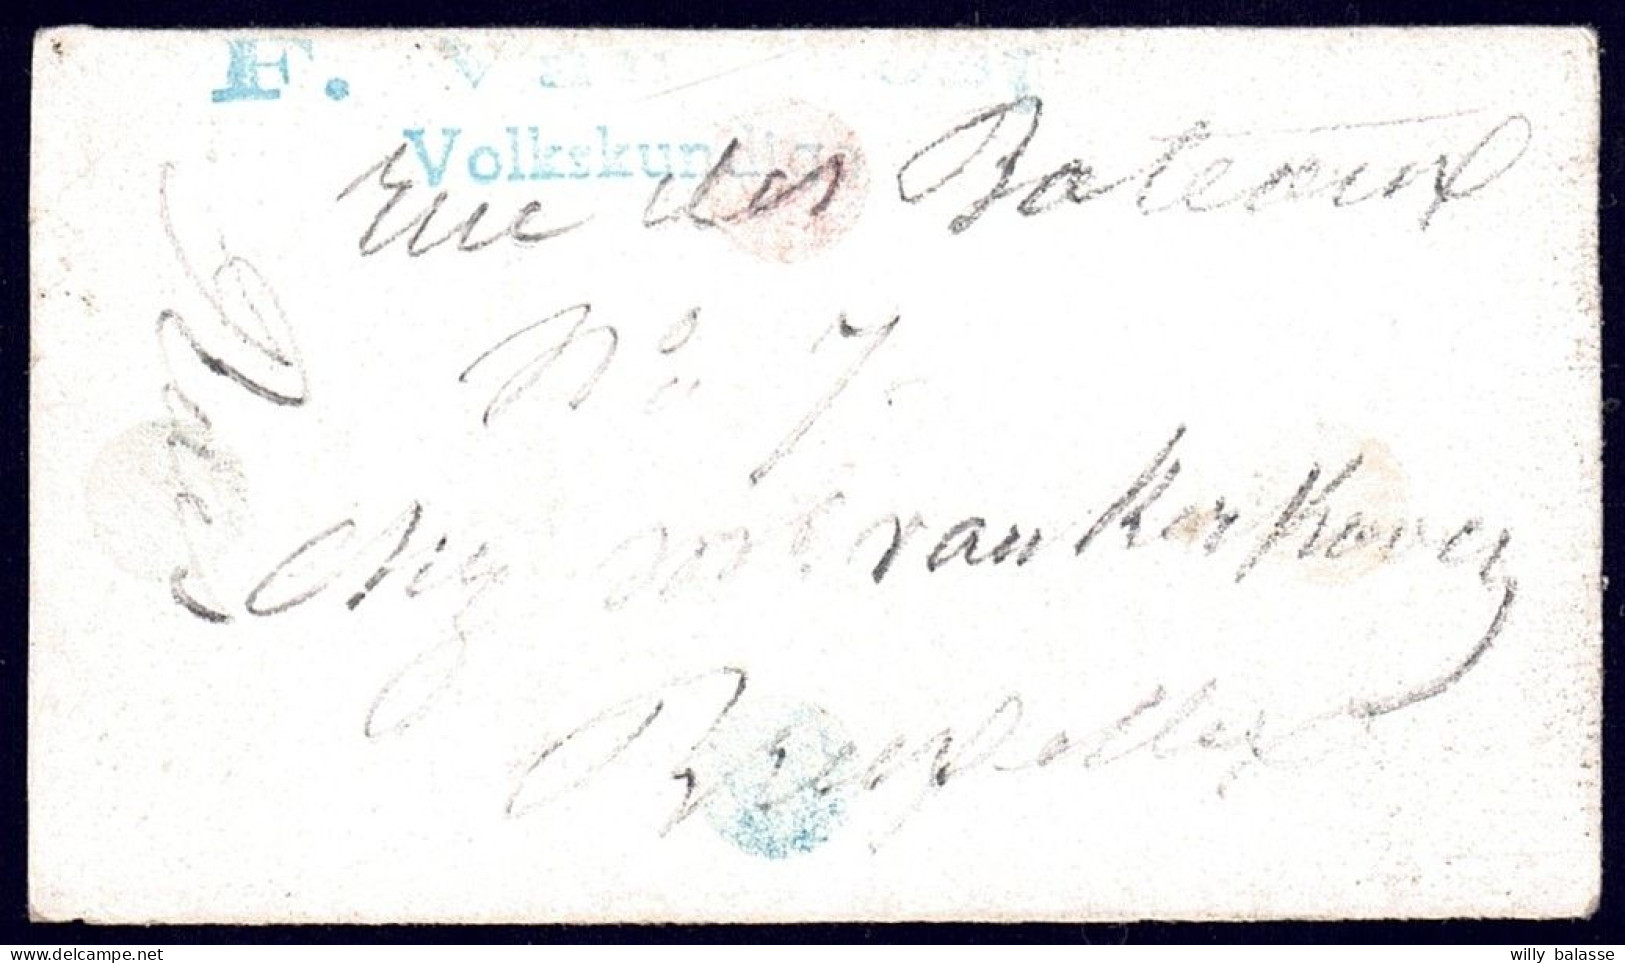 F. Van
Volkskundige
Rue des Bateaux
No 7
Chez Mr van Kerkhoven
Bruxelles
willy balasse